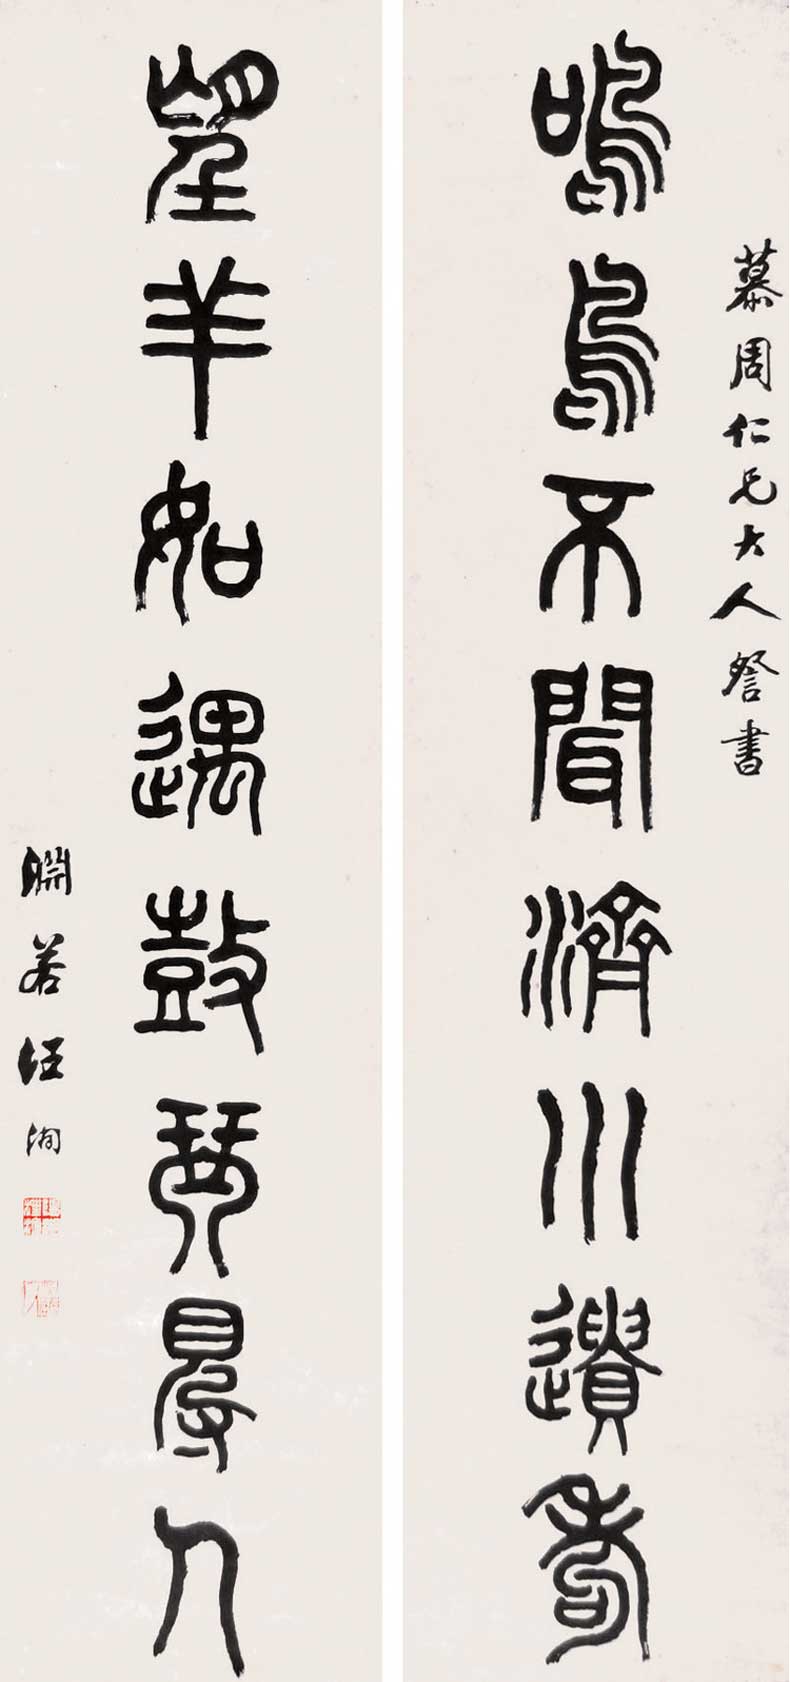 慕周仁兄大人詧書
鳴鳥不聞濟川遺耇
望羊如遇鼓琴晨人
淵若汪洵